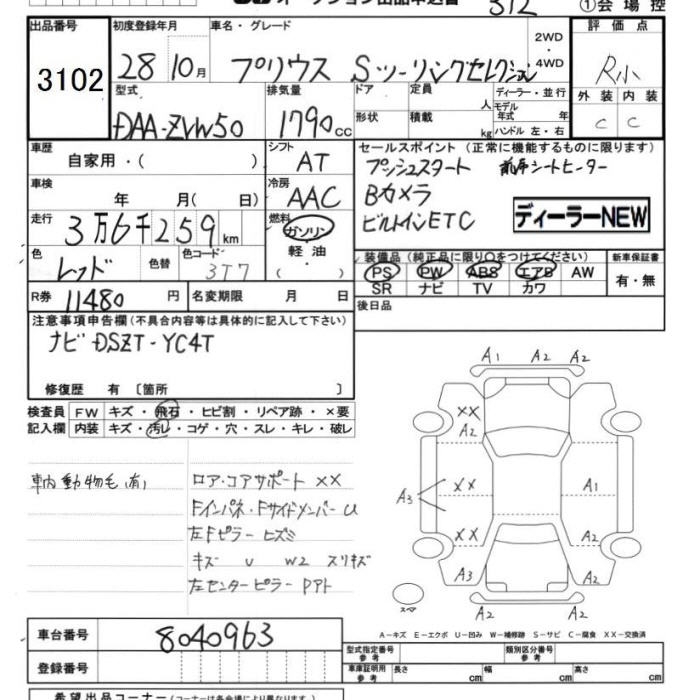 オークション出品申込書 312 ①会場控
出品番号 3102
初度登録年月 28 10月
車名・グレード プリウス Sツーリングセレクション
2WD・4WD
評価点 R小
外装 内装
C C
型式 DAA-ZVW50
排気量 1790cc
ドア 定員 人
形状 積載 kg
ディーラー・並行
モデル年式 年
ハンドル 左・右
車歴 自家用・( )
シフト AT
車検 年 月( 日)
冷房 AAC
走行 3万6千259km
燃料 ガソリン 軽油・( )
色 レッド 色替 色コード 3T7
セールスポイント (正常に機能するものに限ります)
プッシュスタート 前席シートヒーター
Bカメラ
ビルトインETC
ディーラーNEW
装備品 (純正品に限り○をつけてください) 新車保証書
PS PW ABS エアB AW 有・無
SR ナビ TV カワ
R券 11480円 名変期限 月 日
後日品
注意事項申告欄(不具合内容等は具体的に記入して下さい)
ナビ DSZT-YC4T
修復歴 有 〔箇所 〕
検査員 FW キズ・飛石・ヒビ割・リペア跡・×要
記入欄 内装 キズ・汚レ・コゲ・穴・スレ・キレ・破レ
車内動物毛(有)
ロア・コアサポート XX
Fインパネ・Fサイドメンバー U
左Fピラー ヒズミ
キズ U W2 スリキズ
左センターピラー Pアト
A1 A2 A2
XX
A2
A3 XX A1
XX A2
A3 A2
A2 A2
スペア
A-キズ E-エクボ U-凹み W-補修跡 S-サビ C-腐食 XX-交換済
車台番号 8040963
登録番号
型式指定番号 参考 類別区分番号 参考
車庫証明用 参考 長さ cm 幅 cm 高さ cm
希望出品コーナー(コーナーは各会場により異なります)